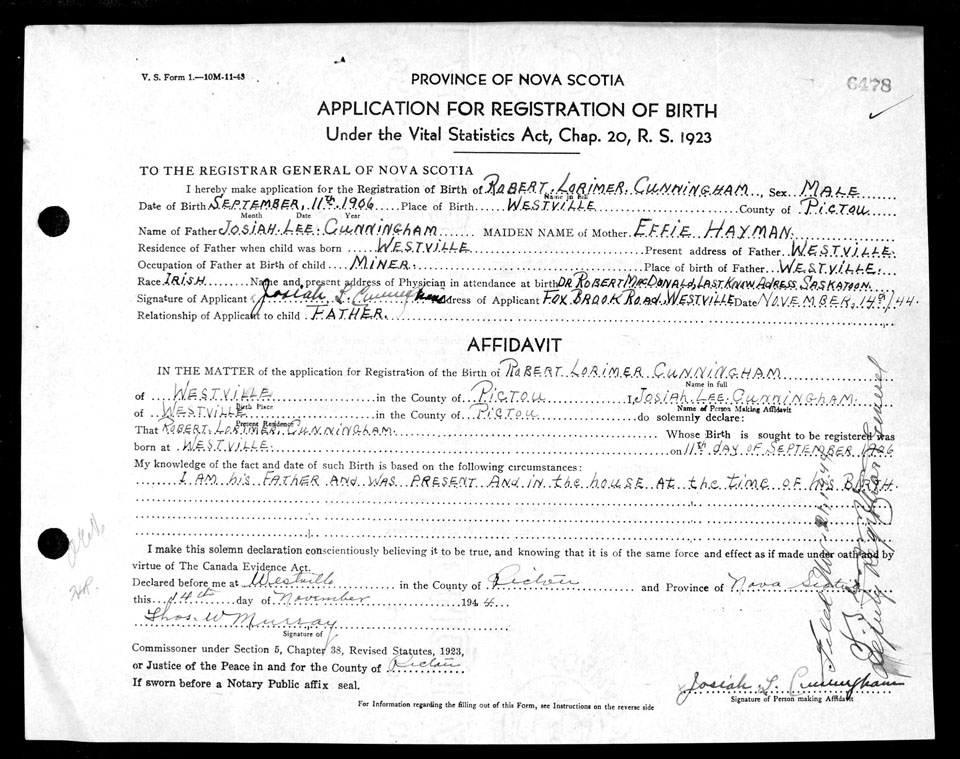 V. S. Form 1.—10M-11-43
6478
PROVINCE OF NOVA SCOTIA
APPLICATION FOR REGISTRATION OF BIRTH
Under the Vital Statistics Act, Chap. 20, R. S. 1923
TO THE REGISTRAR GENERAL OF NOVA SCOTIA
I hereby make application for the Registration of Birth of ROBERT LORIMER CUNNINGHAM, Sex MALE
Name in full
Date of Birth SEPTEMBER, 11th, 1906 Place of Birth WESTVILLE County of PICTOU
Month Date Year
Name of Father JOSIAH LEE CUNNINGHAM MAIDEN NAME of Mother EFFIE HAYMAN
Residence of Father when child was born WESTVILLE Present address of Father WESTVILLE
Occupation of Father at Birth of child MINER Place of birth of Father WESTVILLE
Race IRISH Name and present address of Physician in attendance at birth DR ROBERT MACDONALD, LAST KNOW ADRESS SASKATOON
Signature of Applicant Josiah L Cunningham Address of Applicant FOX BROOK ROAD WESTVILLE Date NOVEMBER, 14th/44
Relationship of Applicant to child FATHER
AFFIDAVIT
IN THE MATTER of the application for Registration of the Birth of ROBERT LORIMER CUNNINGHAM
Name in full
of WESTVILLE in the County of PICTOU I, JOSIAH LEE CUNNINGHAM
Birth Place Name of Person Making Affidavit
of WESTVILLE in the County of PICTOU do solemnly declare:
Present Residence
That ROBERT LORIMER CUNNINGHAM Whose Birth is sought to be registered was
born at WESTVILLE on 11th DAY OF SEPTEMBER 1906
My knowledge of the fact and date of such Birth is based on the following circumstances:
I AM his FATHER AND WAS PRESENT AND IN the house AT the time OF his BIRTH
I make this solemn declaration conscientiously believing it to be true, and knowing that it is of the same force and effect as if made under oath and by
virtue of The Canada Evidence Act.
Declared before me at Westville in the County of Pictou and Province of Nova Scotia
this 14th day of November 1944
Thos. W Murray
Signature of
Commissoner under Section 5, Chapter 38, Revised Statutes, 1923,
or Justice of the Peace in and for the County of Pictou
If sworn before a Notary Public affix seal.
Josiah L Cunningham
Signature of Person making Affidavit
For Information regarding the filling out of this Form, see Instructions on the reverse side
Deputy Registrar General